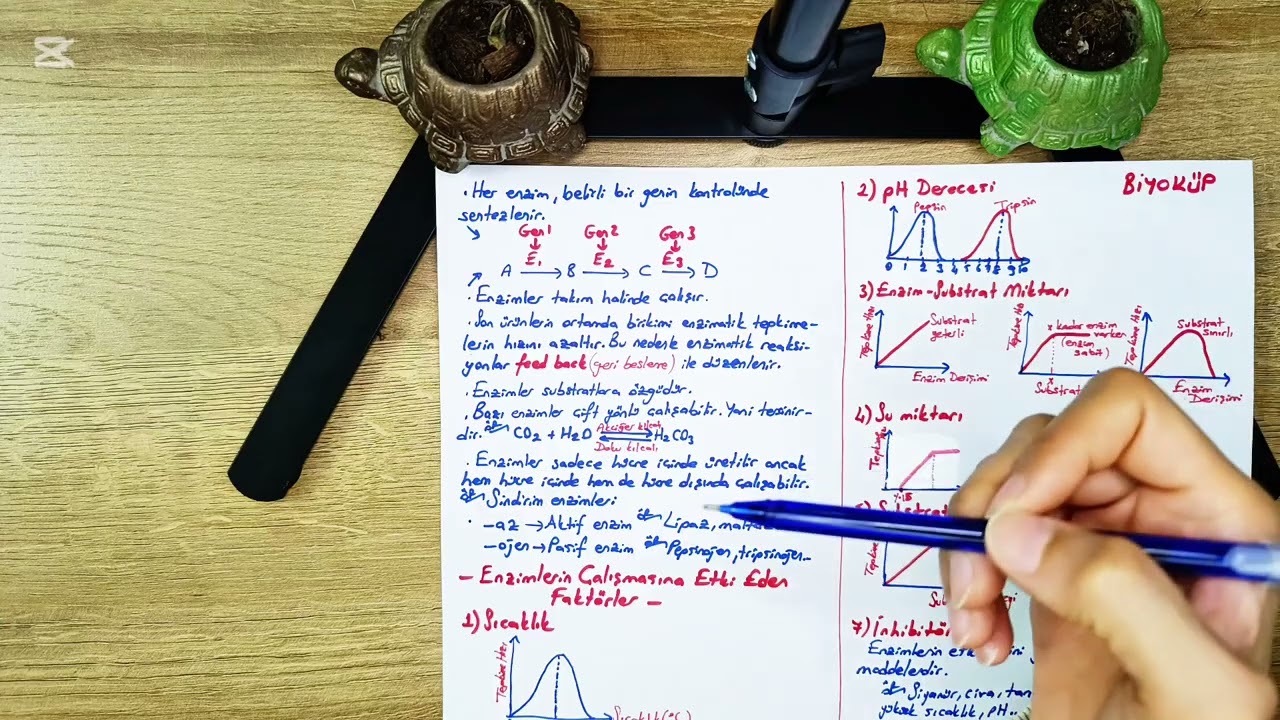 • Her enzim, belirli bir genin kontrolünde
sentezlenir.
Gen1 Gen2 Gen3
E1 E2 E3
A B C D
• Enzimler takım halinde çalışır.
• Son ürünlerin ortamda birikimi enzimatik tepkime-
lerin hızını azaltır. Bu nedenle enzimatik reaksi-
yonlar feed back (geri besleme) ile düzenlenir.
• Enzimler substratlara özgüdür.
• Bazı enzimler çift yönlü çalışabilir. Yani tersinir-
dir. ör CO2 + H2O Akciğer kılcalı H2CO3
Doku kılcalı
• Enzimler sadece hücre içinde üretilir ancak
hem hücre içinde hem de hücre dışında çalışabilir.
ör Sindirim enzimleri
• -az → Aktif enzim ör Lipaz,
-ojen → Pasif enzim ör Pepsinojen, tripsinojen..
- Enzimlerin Çalışmasına Etki Eden
Faktörler -
1) Sıcaklık
Tepkime Hızı
Sıcaklık (°C)
BİYOKÜP
2) pH Derecesi
Pepsin Tripsin
0 1 2 3 4 5 6 7 8 9 10
3) Enzim-Substrat Miktarı
Tepkime Hızı
Substrat
yeterli
Enzim Derişimi
Tepkime Hızı
x kadar enzim
varken
(enzim
sabit)
x
Substrat
Tepkime Hızı
Substrat
sınırlı
Enzim
Derişimi
4) Su miktarı
%15
7) İnhibitör
Enzimlerin
maddelerdir.
ör Siyanür, civa,
yüksek sıcaklık, pH..